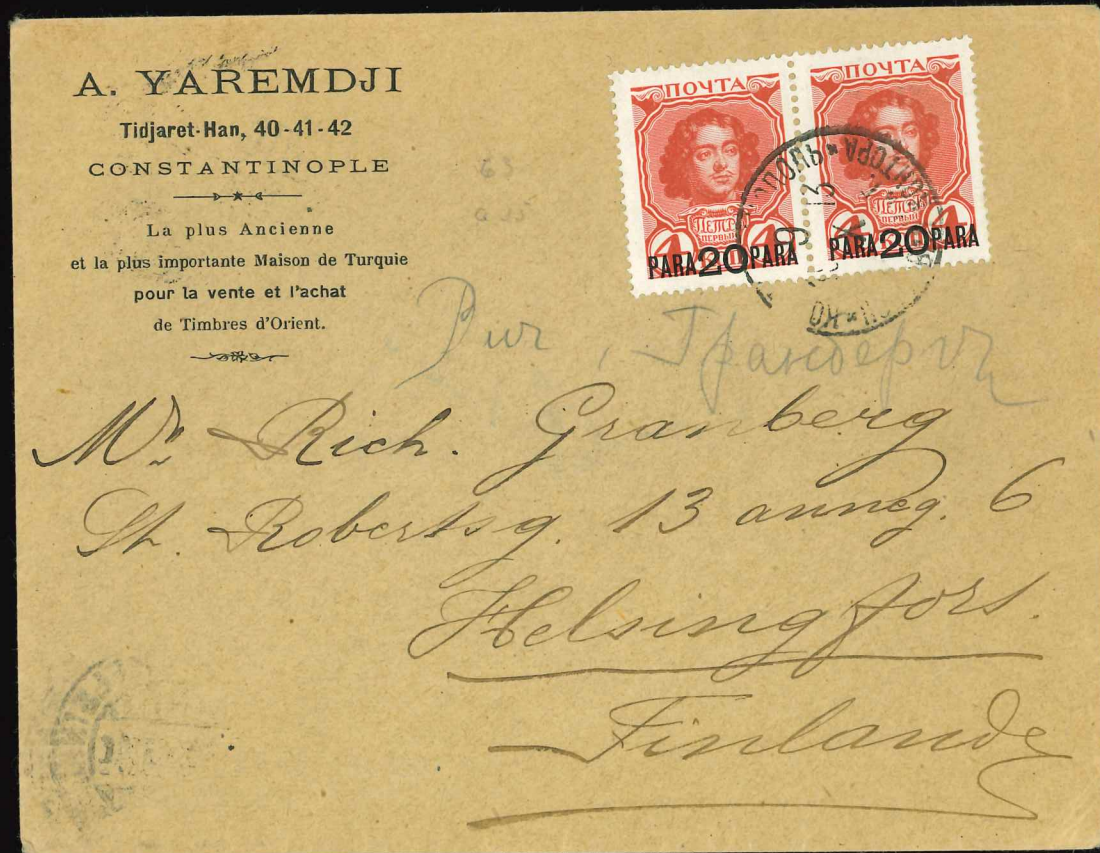 A. YAREMDJI
Tidjaret-Han, 40-41-42
CONSTANTINOPLE
La plus Ancienne
et la plus importante Maison de Turquie
pour la vente et l'achat
de Timbres d'Orient.
ПОЧТА ПОЧТА
ПЕТРЪ ПЕТРЪ
ПЕРВЫЙ ПЕРВЫЙ
4 4 4 4
PARA 20 PARA PARA 20 PARA
63
Рич, Гранберг
Mr. Rich. Granberg
St. Robertsg. 13 anneg. 6
Helsingfors.
Finlande